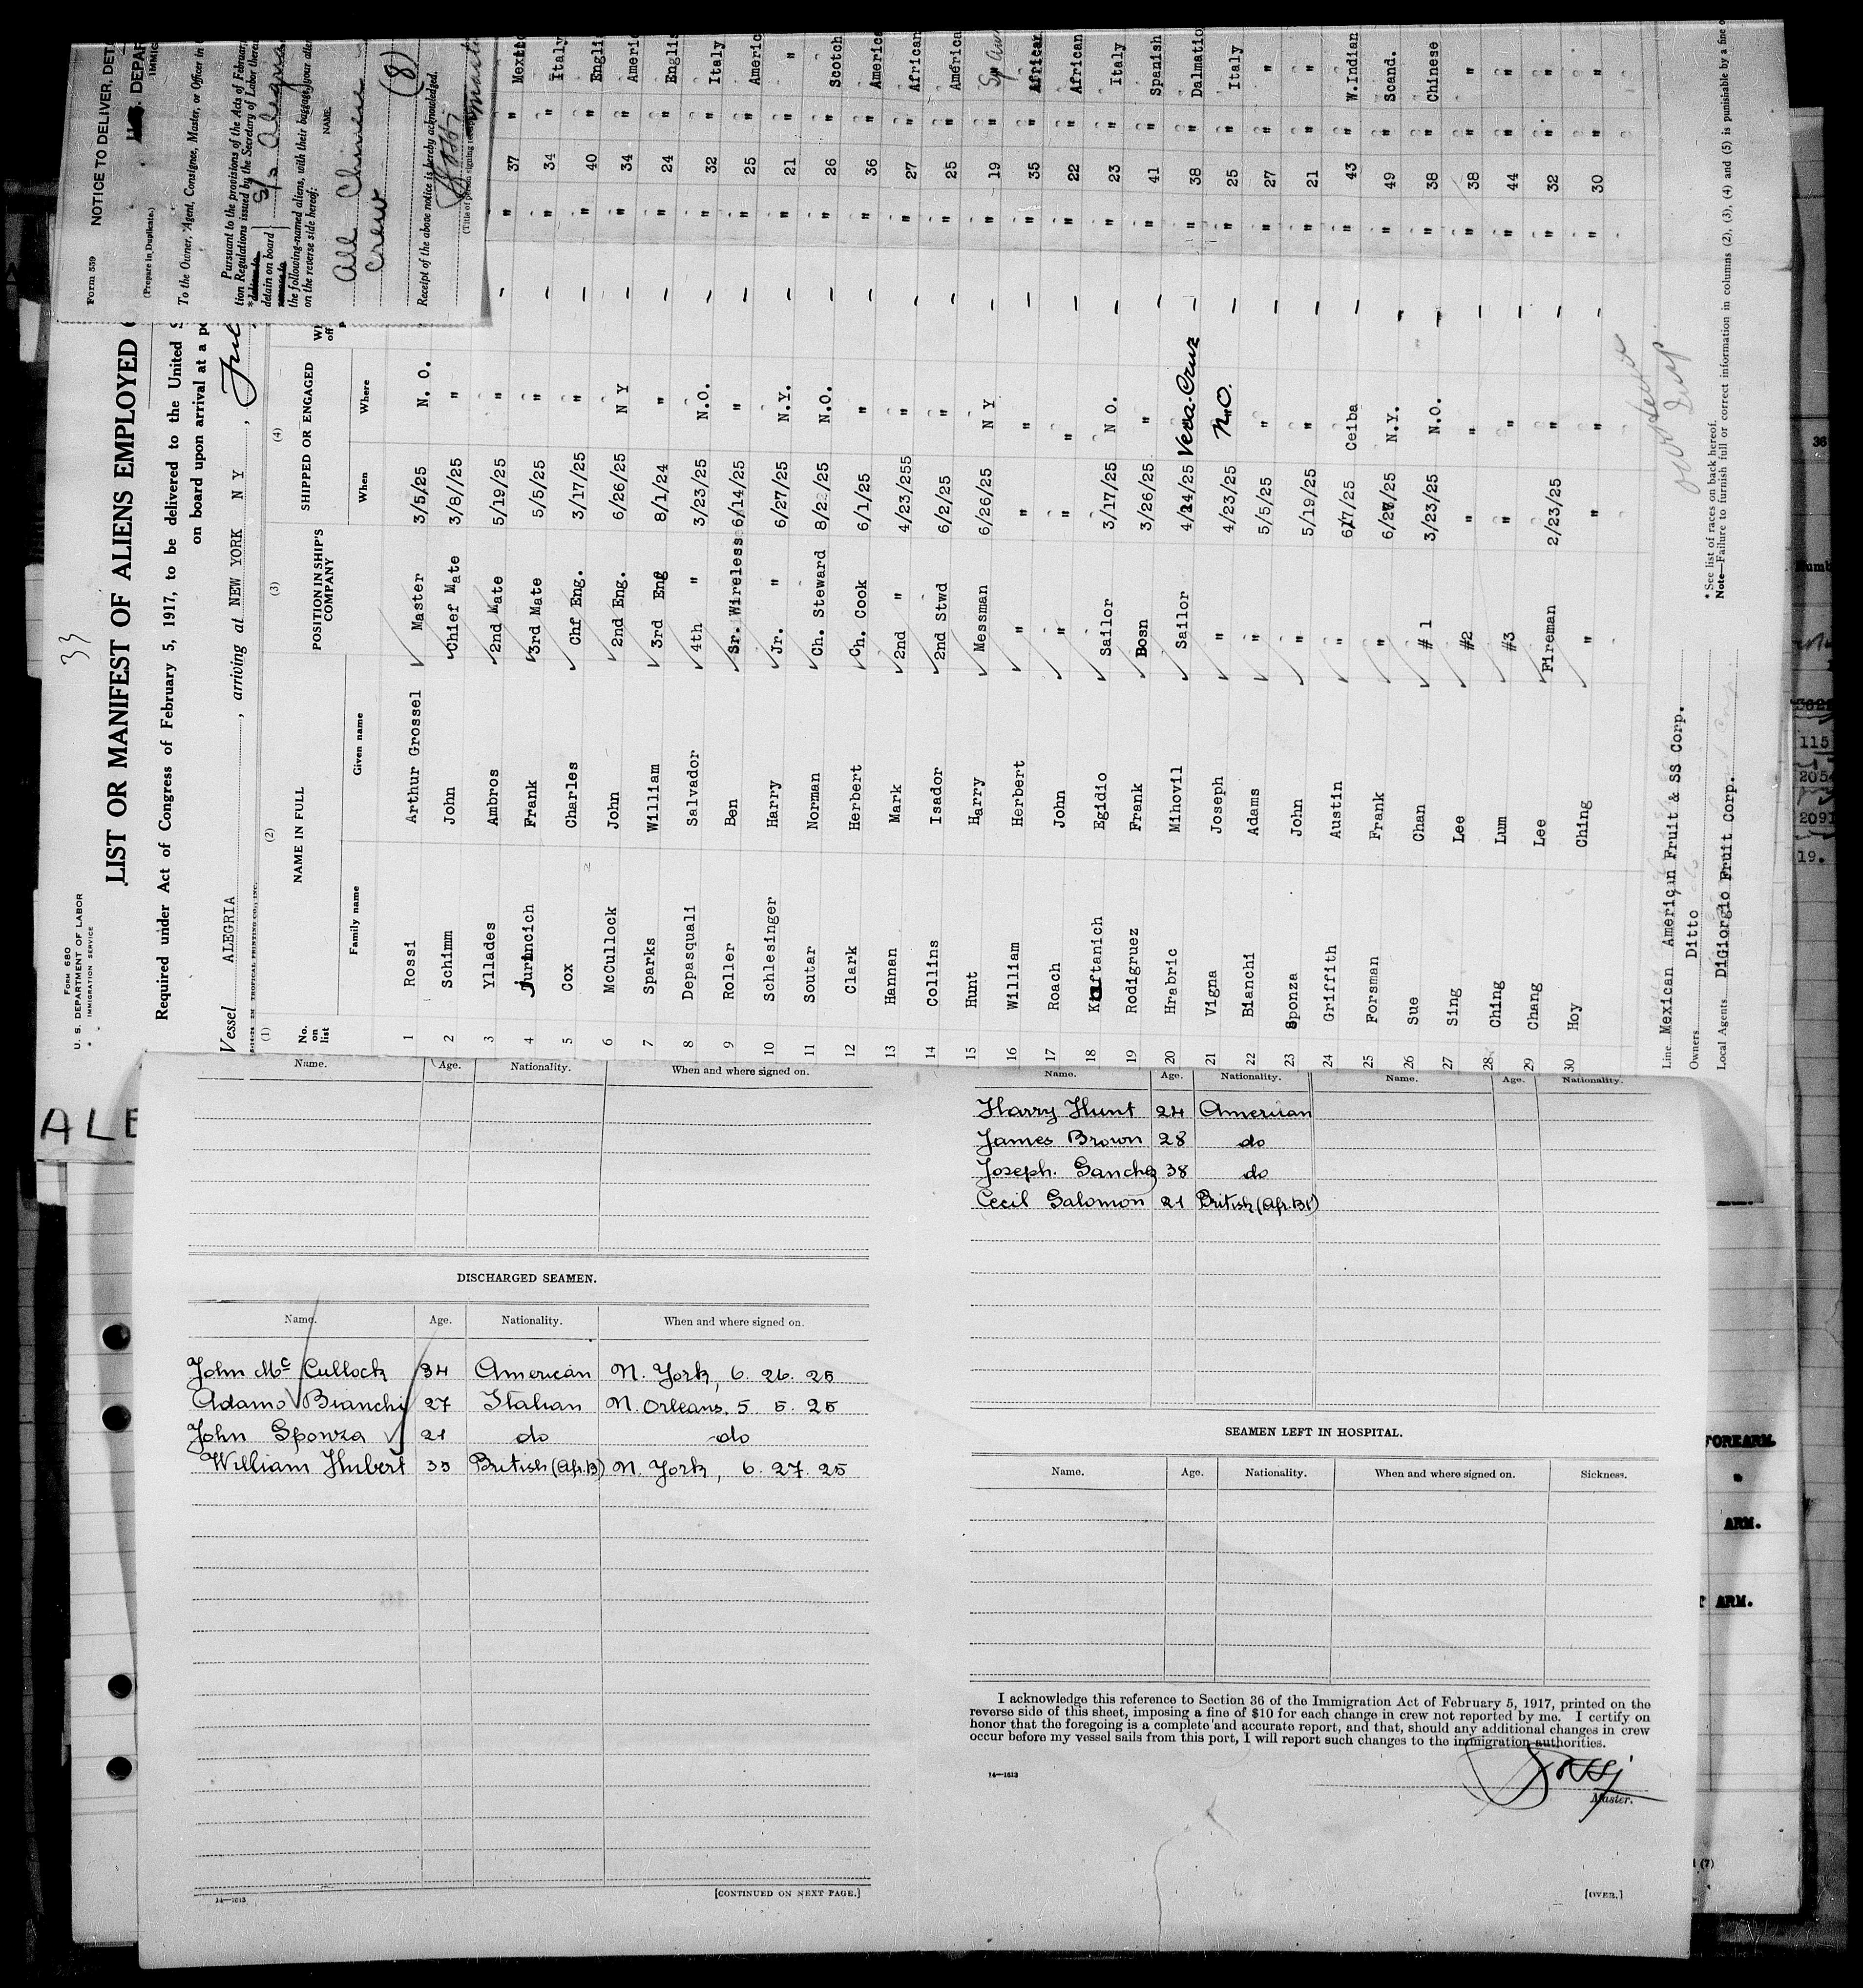 Form 539
NOTICE TO DELIVER, DET
U.S. DEPAR
IMMIC
(Prepare in Duplicate.)
To the Owner, Agent, Consignee, Master, or Officer in
Pursuant to the provisions of the Acts of Februar
tion Regulations issued by the Secretary of Labor there
detain on board S/s Alegria
the following-named aliens, with their baggage
on the reverse side hereof:
NAME.
All Chinese
Crew (8)
Receipt of the above notice is hereby acknowledged.
Rossi
Master
(Title of person signing receipt
33
Form 680
U. S. DEPARTMENT OF LABOR
IMMIGRATION SERVICE
LIST OR MANIFEST OF ALIENS EMPLOYED
Required under Act of Congress of February 5, 1917, to be delivered to the United S
on board upon arrival at a po
Vessel ALEGRIA, arriving at NEW YORK N Y,
(1) (2) (3) (4)
No. on list NAME IN FULL POSITION IN SHIP'S COMPANY SHIPPED OR ENGAGED
Family name Given name When Where
1 Rossi Arthur Grossel Master 3/5/25 N. O.
2 Schimm John Chief Mate 3/8/25 " - " 37 " Mexic
3 Yllades Ambros 2nd Mate 5/19/25 " - " 34 " Italy
4 Jurincich Frank 3rd Mate 5/5/25 " - " 40 " Engli
5 Cox Charles Chf Eng. 3/17/25 " - " 34 " Americ
6 McCullock John 2nd Eng. 6/26/25 N Y - " 24 " Englis
7 Sparks William 3rd Eng 8/1/24 " - " 32 " Italy
8 Depasquali Salvador 4th " 3/23/25 N.O. - " 25 " Americ
9 Roller Ben Sr. Wireless 6/14/25 " - " 21 " "
10 Schlesinger Harry Jr. " 6/27/25 N.Y. - " 26 " Scotch
11 Soutar Norman Ch. Steward 8/22/25 N.O. - " 36 " America
12 Clark Herbert Ch. Cook 6/1/25 " - " 27 " African
13 Hannan Mark 2nd " 4/23/255 " - " 25 " America
14 Collins Isador 2nd Stwd 6/2/25 " - " 19 "
15 Hunt Harry Messman 6/26/25 N Y - " 35 " African
16 William Herbert " " " - " 22 " African
17 Roach John " " " - " 23 " Italy
18 Egidio Sailor 3/17/25 N O. - " 41 " Spanish
19 Rodigruez Frank Bosn 3/26/25 " - " 38 " Dalmatio
20 Hrabric Mihovil Sailor 4/14/25 Vera-Cruz - " 25 " Italy
21 Vigna Joseph " 4/23/25 N.O. - " 27 " "
22 Bianchi Adams " 5/5/25 " - " 21 " "
23 Sponza John " 5/19/25 " - " 43 " W.Indian
24 Griffith Austin " 6/7/25 Ceiba - " 49 " Scand.
25 Forsman Frank " 6/27/25 N.Y. - " 38 " Chinese
26 Sue Chan # 1 3/23/25 N.O. - " 38 " "
27 Sing Lee #2 " " - " 44 " "
28 Ching Lum #3 " " - " 32 " "
29 Chang Lee Fireman 2/23/25 " - " 30 " "
30 Hoy Ching " " "
Line Mexican American Fruit & SS Corp.
Owners Ditto
Local Agents DiGiorgio Fruit Corp.
* See list of races on back hereof.
Note—Failure to furnish full or correct information in columns (2), (3), (4) and (5) is punishable by a fine o
ALE
Name. Age. Nationality. When and where signed on.
DISCHARGED SEAMEN.
Name. Age. Nationality. When and where signed on.
John Mc Cullock 34 American N. York, 6. 26. 25
Adamo Bianchi 27 Italian N. Orleans. 5 5. 25
John Sponza 21 do do
William Hubert 35 British (Afr.B) N. York, 6. 27. 25
14—1613
[CONTINUED ON NEXT PAGE.]
Name. Age. Nationality. Name. Age. Nationality.
Harry Hunt 24 American
James Brown 28 do
Joseph. Sanchez 38 do
Cecil Salomon 21 British (Afr. Bl)
SEAMEN LEFT IN HOSPITAL.
Name. Age. Nationality. When and where signed on. Sickness.
I acknowledge this reference to Section 36 of the Immigration Act of February 5, 1917, printed on the
reverse side of this sheet, imposing a fine of $10 for each change in crew not reported by me. I certify on
honor that the foregoing is a complete and accurate report, and that, should any additional changes in crew
occur before my vessel sails from this port, I will report such changes to the immigration authorities.
Rossi
Master.
14—1613
[OVER.]
36
115
2054
2091
19.
FOREARM.
ARM.
ARM.
(7)